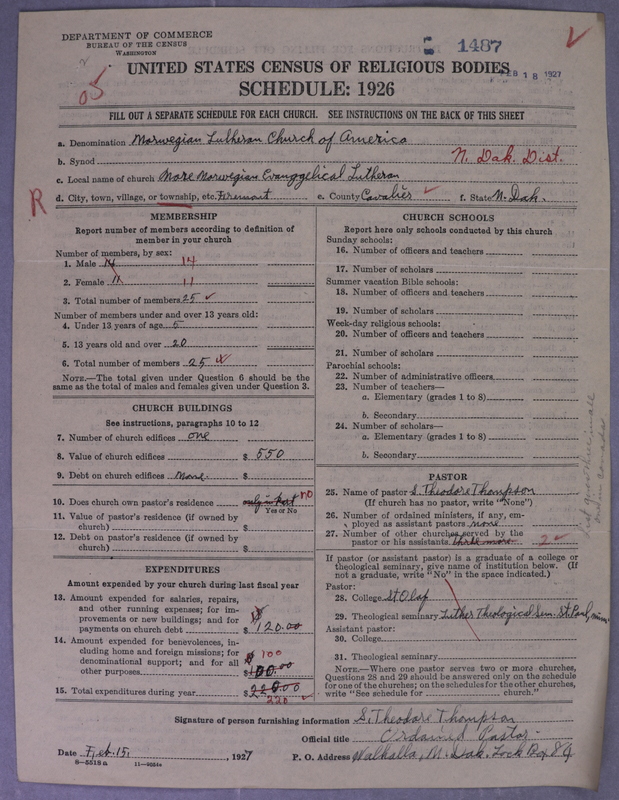 DEPARTMENT OF COMMERCE
BUREAU OF THE CENSUS
WASHINGTON
5 1487
FEB 18 1927
05
UNITED STATES CENSUS OF RELIGIOUS BODIES
SCHEDULE: 1926
FILL OUT A SEPARATE SCHEDULE FOR EACH CHURCH. SEE INSTRUCTIONS ON THE BACK OF THIS SHEET
a. Denomination Norwegian Lutheran Church of America
b. Synod N. Dak. Dist.
c. Local name of church More Norwegian Evanggelical Lutheran
R
d. City, town, village, or township, etc. Fremont e. County Cavalier f. State N. Dak.
MEMBERSHIP
Report number of members according to definition of
member in your church
Number of members, by sex:
1. Male 14 14
2. Female 11 11
3. Total number of members 25
Number of members under and over 13 years old:
4. Under 13 years of age 5
5. 13 years old and over 20
6. Total number of members 25
NOTE.—The total given under Question 6 should be the
same as the total of males and females given under Question 3.
CHURCH BUILDINGS
See instructions, paragraphs 10 to 12
7. Number of church edifices one
8. Value of church edifices $ 550
9. Debt on church edifices None. $
10. Does church own pastor's residence only in part no
Yes or No
11. Value of pastor's residence (if owned by
church) $
12. Debt on pastor's residence (if owned by
church) $
EXPENDITURES
Amount expended by your church during last fiscal year
13. Amount expended for salaries, repairs,
and other running expenses; for im-
provements or new buildings; and for
payments on church debt $ 120.00
14. Amount expended for benevolences, in-
cluding home and foreign missions; for
denominational support; and for all
other purposes $ 100.00 100
15. Total expenditures during year $ 220.00
220
CHURCH SCHOOLS
Report here only schools conducted by this church
Sunday schools:
16. Number of officers and teachers
17. Number of scholars
Summer vacation Bible schools:
18. Number of officers and teachers
19. Number of scholars
Week-day religious schools:
20. Number of officers and teachers
21. Number of scholars
Parochial schools:
22. Number of administrative officers
23. Number of teachers—
a. Elementary (grades 1 to 8)
b. Secondary
24. Number of scholars—
a. Elementary (grades 1 to 8)
b. Secondary
PASTOR
25. Name of pastor S. Theodore Thompson
(If church has no pastor, write "None")
26. Number of ordained ministers, if any, em-
ployed as assistant pastors none
27. Number of other churches served by the
pastor or his assistants three more 2
If pastor (or assistant pastor) is a graduate of a college or
theological seminary, give name of institution below. (If
not a graduate, write "No" in the space indicated.)
Pastor:
28. College St Olaf
29. Theological seminary Luther Theological Sem. St. Paul, Minn.
Assistant pastor:
30. College
31. Theological seminary
NOTE.—Where one pastor serves two or more churches,
Questions 28 and 29 should be answered only on the schedule
for one of the churches; on the schedules for the other churches,
write "See schedule for church."
Signature of person furnishing information S. Theodore Thompson
Official title Ordained Pastor
Date Feb. 15, , 1927
P. O. Address Walhalla, N. Dak. Lock Box 89
8-5518a 11-9054a